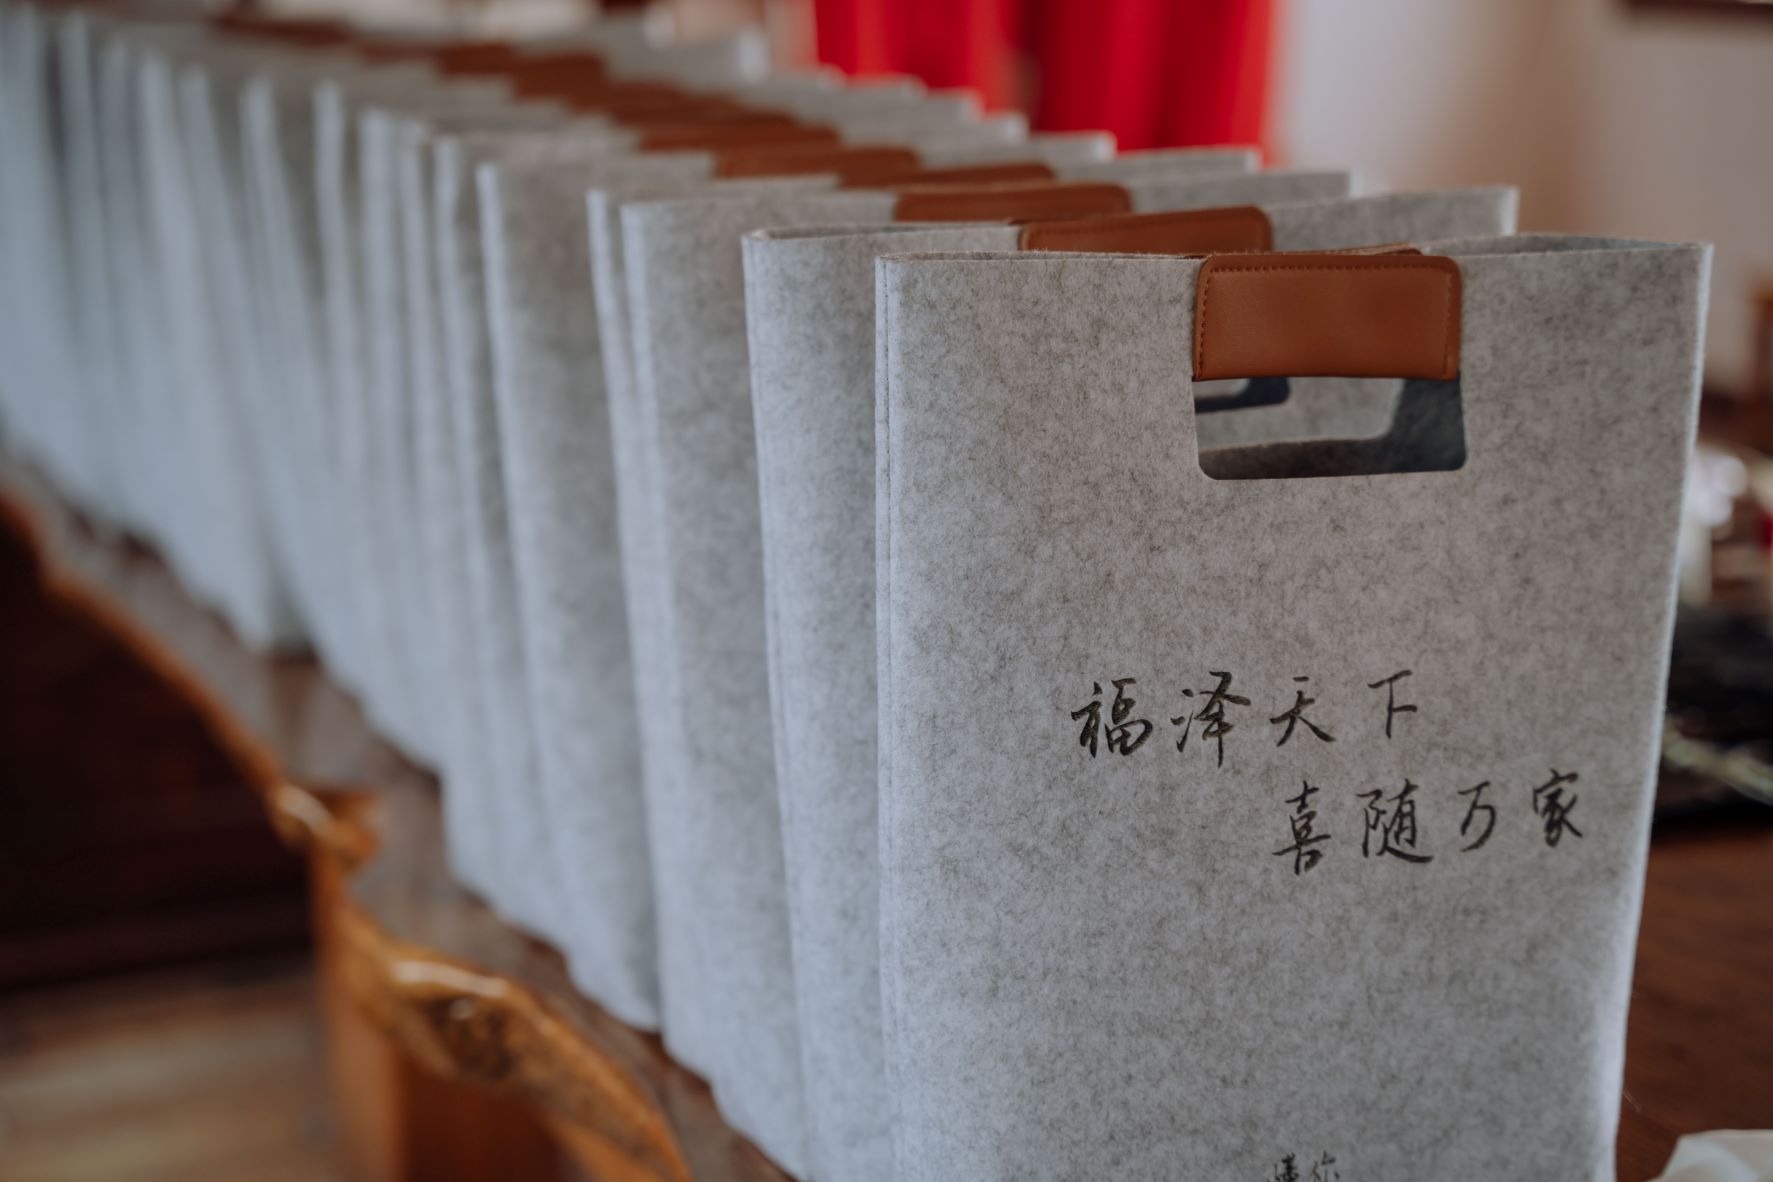 福泽天下
喜随万家